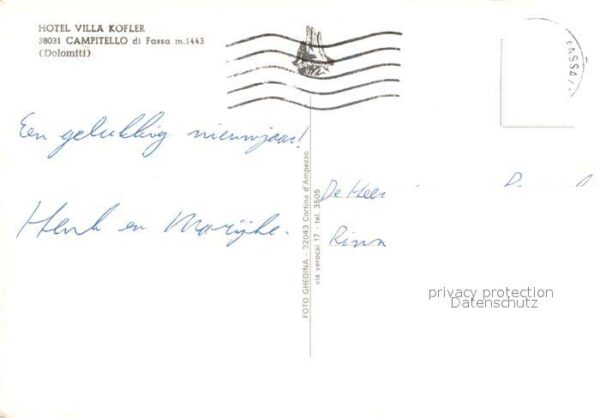 HOTEL VILLA KOFLER
38031 CAMPITELLO di Fassa m.1443
(Dolomiti)
FASSA
Een gelukkig nieuwjaar!
Henk en Marijke.
FOTO GHEDINA - 32043 Cortina d'Ampezzo
via verocai 17 - tel. 3605
De Heer
privacy protection
Datenschutz